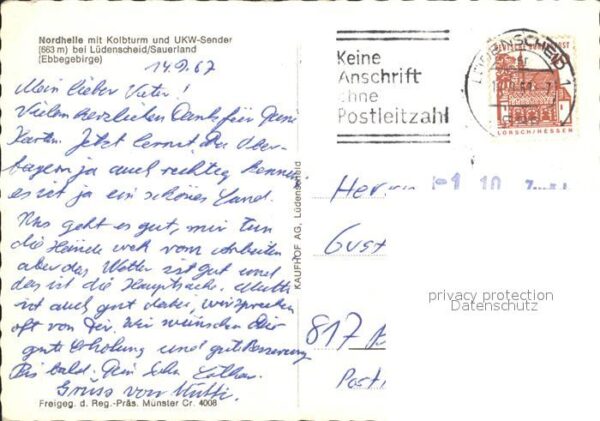 Nordhelle mit Kolbturm und UKW-Sender
(663 m) bei Lüdenscheid/Sauerland
(Ebbegebirge)
14.9.67
Mein lieber Vater!
Vielen herzlichen Dank für Deine
Karten. Jetzt lernst Du Ober-
bayern ja auch richtig kennen
es ist ja ein schönes Land.
Uns geht es gut, mir tun
die Hände weh vom Arbeiten
aber das Wetter ist gut und
das ist die Hauptsache. Mutti
ist auch gut dabei, wir sprechen
oft von Dir. Wir wünschen Dir
gute Erholung und gute Besserung
Bis bald. Dein Sohn Lothar.
Gruss von Mutti.
Freigeg. d. Reg.-Präs. Münster Cr. 4008
KAUFHOF AG, Lüdenscheid
Keine
Anschrift
ohne
Postleitzahl
LÜDENSCHEID 1
DEUTSCHE BUNDESPOST
LORSCH/HESSEN
Herrn
Gust
817
Post
privacy protection
Datenschutz